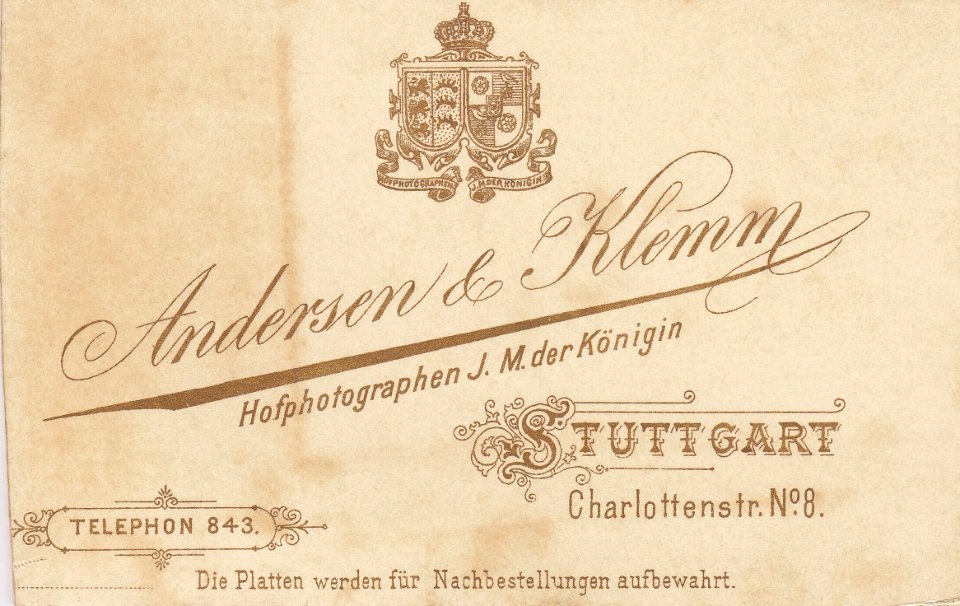 HOFPHOTOGRAPHEN J. M. DER KÖNIGIN
Andersen & Klemm
Hofphotographen J. M. der Königin
STUTTGART
Charlottenstr. No 8.
TELEPHON 843.
Die Platten werden für Nachbestellungen aufbewahrt.